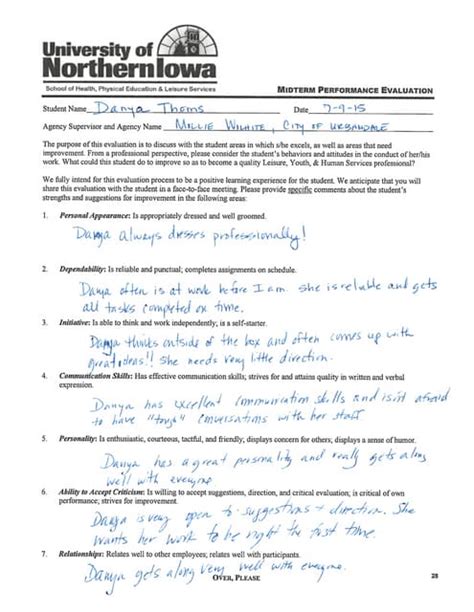 University of
Northern Iowa
School of Health, Physical Education & Leisure Services
MIDTERM PERFORMANCE EVALUATION
Student Name Danya Thoms Date 7-9-15
Agency Supervisor and Agency Name Millie Wilhite, City of Urbandale
The purpose of this evaluation is to discuss with the student areas in which s/he excels, as well as areas that need
improvement. From a professional perspective, please consider the student's behaviors and attitudes in the conduct of her/his
work. What could this student do to improve so as to become a quality Leisure, Youth, & Human Services professional?
We fully intend for this evaluation process to be a positive learning experience for the student. We anticipate that you will
share this evaluation with the student in a face-to-face meeting. Please provide specific comments about the student's
strengths and suggestions for improvement in the following areas:
1. Personal Appearance: Is appropriately dressed and well groomed.
Danya always dresses professionally!
2. Dependability: Is reliable and punctual; completes assignments on schedule.
Danya often is at work before I am. She is reliable and gets
all tasks completed on time.
3. Initiative: Is able to think and work independently, is a self-starter.
Danya thinks outside of the box and often comes up with
great ideas!! She needs very little direction.
4. Communication Skills: Has effective communication skills; strives for and attains quality in written and verbal
expression.
Danya has excellent communication skills and isn't afraid
to have "tough" conversations with her staff
5. Personality: Is enthusiastic, courteous, tactful, and friendly; displays concern for others; displays a sense of humor.
Danya has a great personality and really gets along
well with everyone
6. Ability to Accept Criticism: Is willing to accept suggestions, direction, and critical evaluation; is critical of own
performance; strives for improvement.
Danya is very open to suggestions + direction. She
wants her work to be right the first time.
7. Relationships: Relates well to other employees; relates well with participants.
Danya gets along very well with everyone.
OVER, PLEASE
28